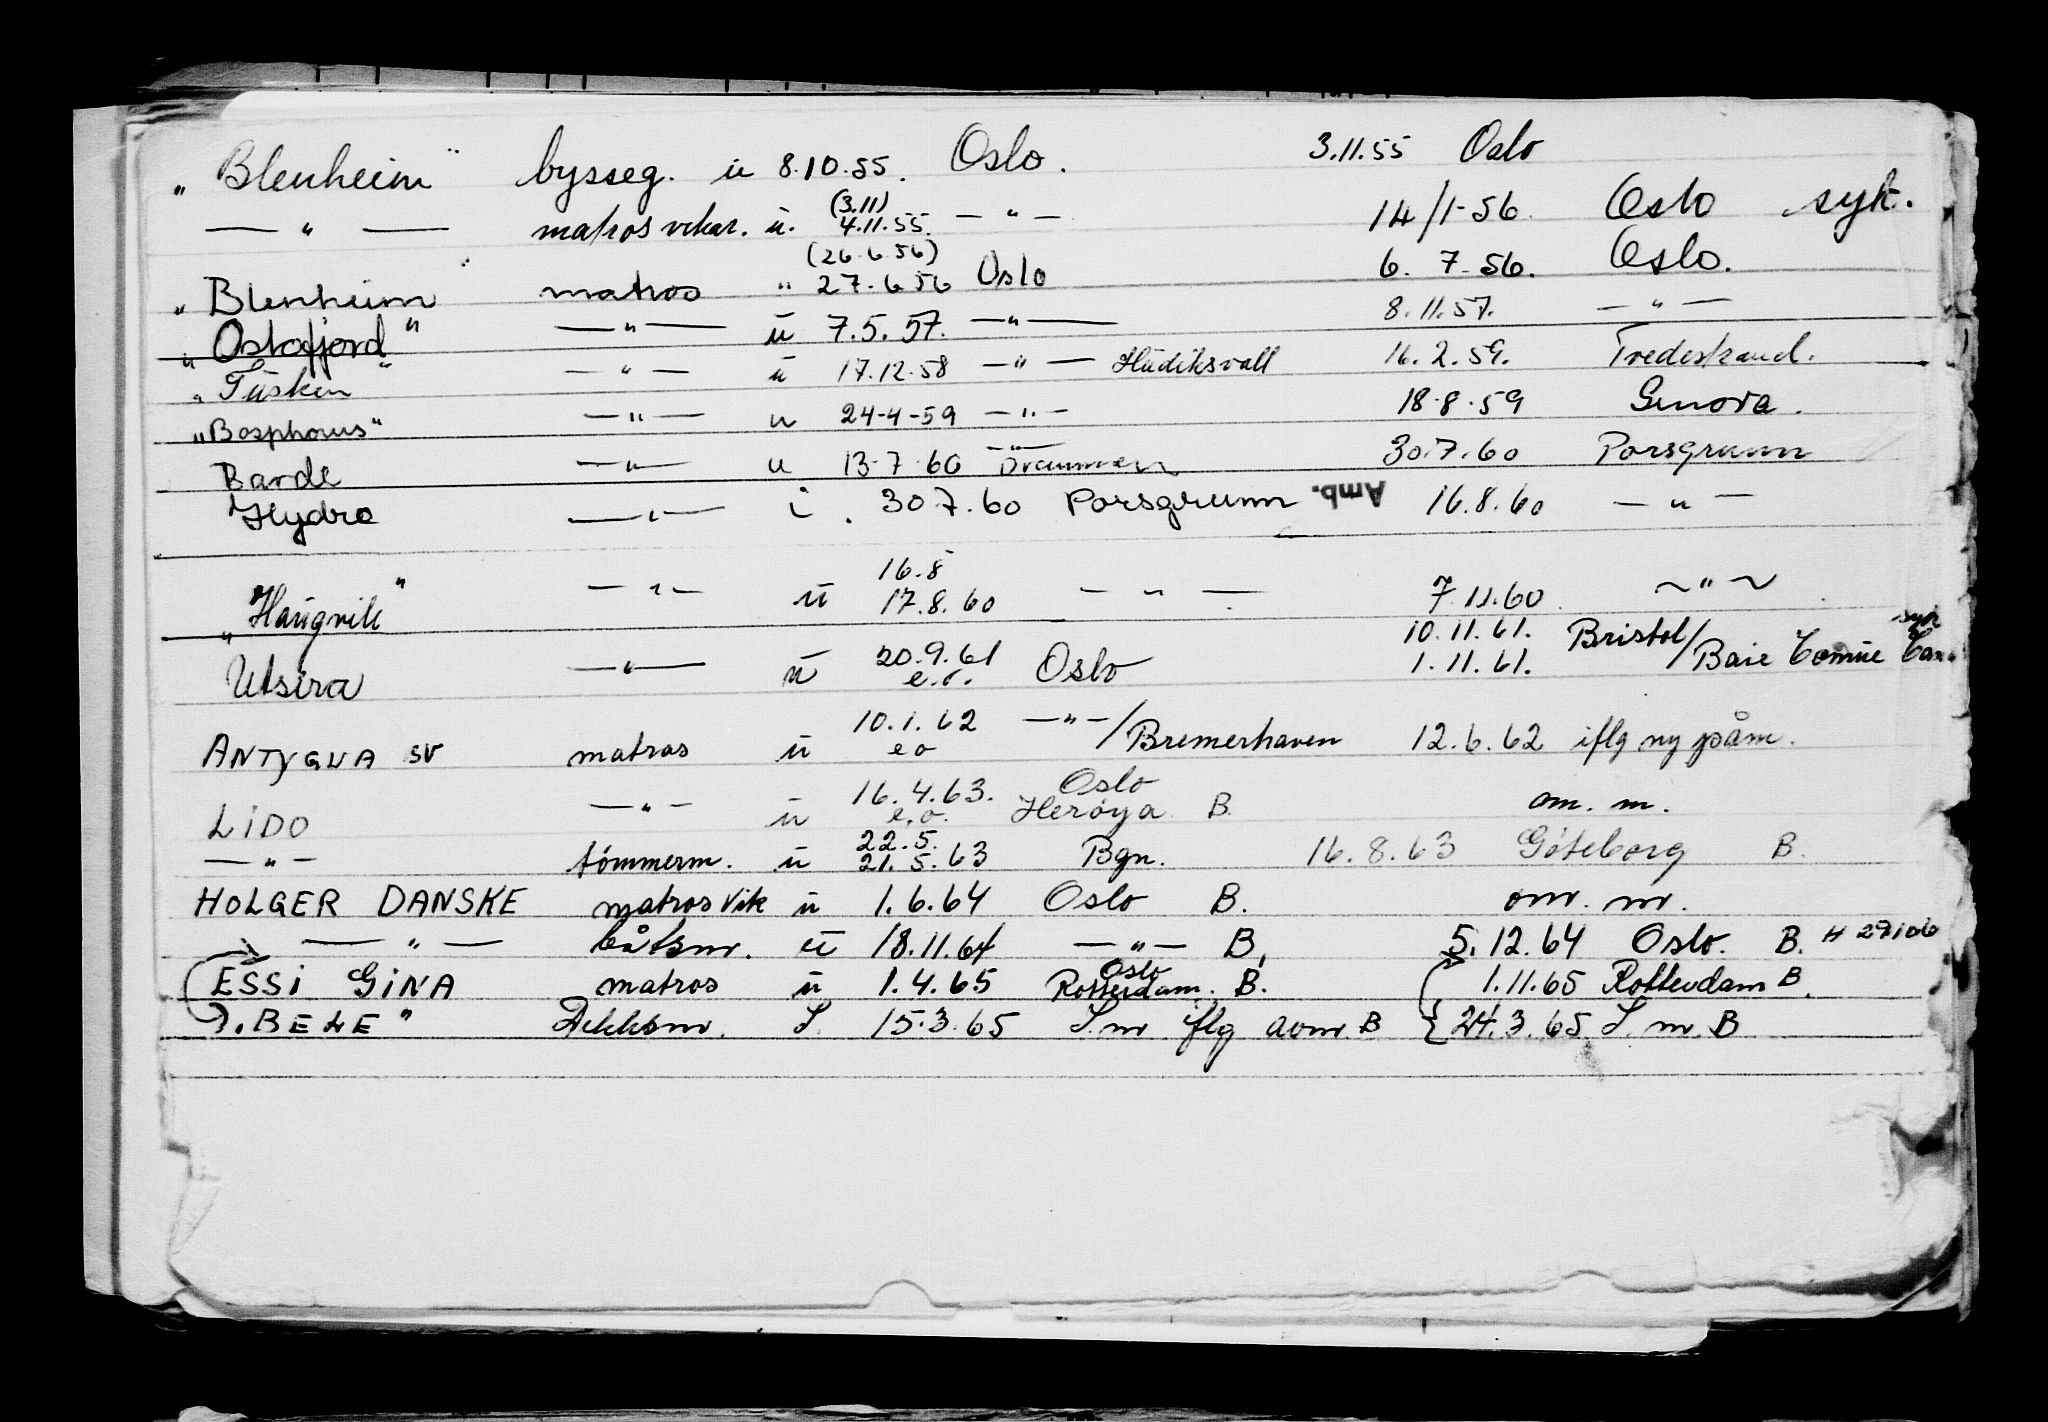 „Blenheim" bysseg. ü 8.10.55. Oslo. 3.11.55 Oslo
— " — matros vikar. ü. (3.11) 4.11.55. — " — 14/1-56 Oslo syk.
„Blenheim" matros " (26.6.56) 27.6.56 Oslo 6.7-56. Oslo.
„Oslofjord" — " — ü 7.5.57. — " — 8.11.57. — " —
„Tüsken" — " — ü 17.12.58 — " — Hüdiksvall 16.2.59. Tvedestrand.
„Bosphorus" — " — u 24-4-59 — " — 18.8.59 Genova.
Barde — " — u 13-7-60 — " — Drammen 30.7.60 Porsgrunn
Hydro — " — i. 30.7.60 Porsgrunn Amb. 16.8.60 — " —
„Haügvik" — " — ü 16.8 17.8.60 — " — 7.11.60 ~ " ~
Utsira — " — ü 20.9.61 e.o. Oslo 10.11.61. Bristol/ 1.11.61. Baie Comüe Can. syk
ANTYGUA SV matros ü 10.1.62 e o — " — /Bremerhaven 12.6.62 iflg ny påm.
LIDO — " — ü 16.4.63. e.o. Oslo Herøya B. om. m.
— " — tømmerm. ü 22.5. 21.5.63 Bgn. 16.8.63 Göteborg B.
HOLGER DANSKE matros vik ü 1.6.64 Oslo B. om. m.
— " — båtsm. ü 18.11.64 — " — B. 5.12.64 Oslo. B. H 27106
ESSI GINA matros ü 1.4.65 Oslo Rotterdam. B. 1.11.65 Rotterdam B.
„BELE" Dekksm. S. 15.3.65 S.m iflg aom. B 24.3.65 S.m. B